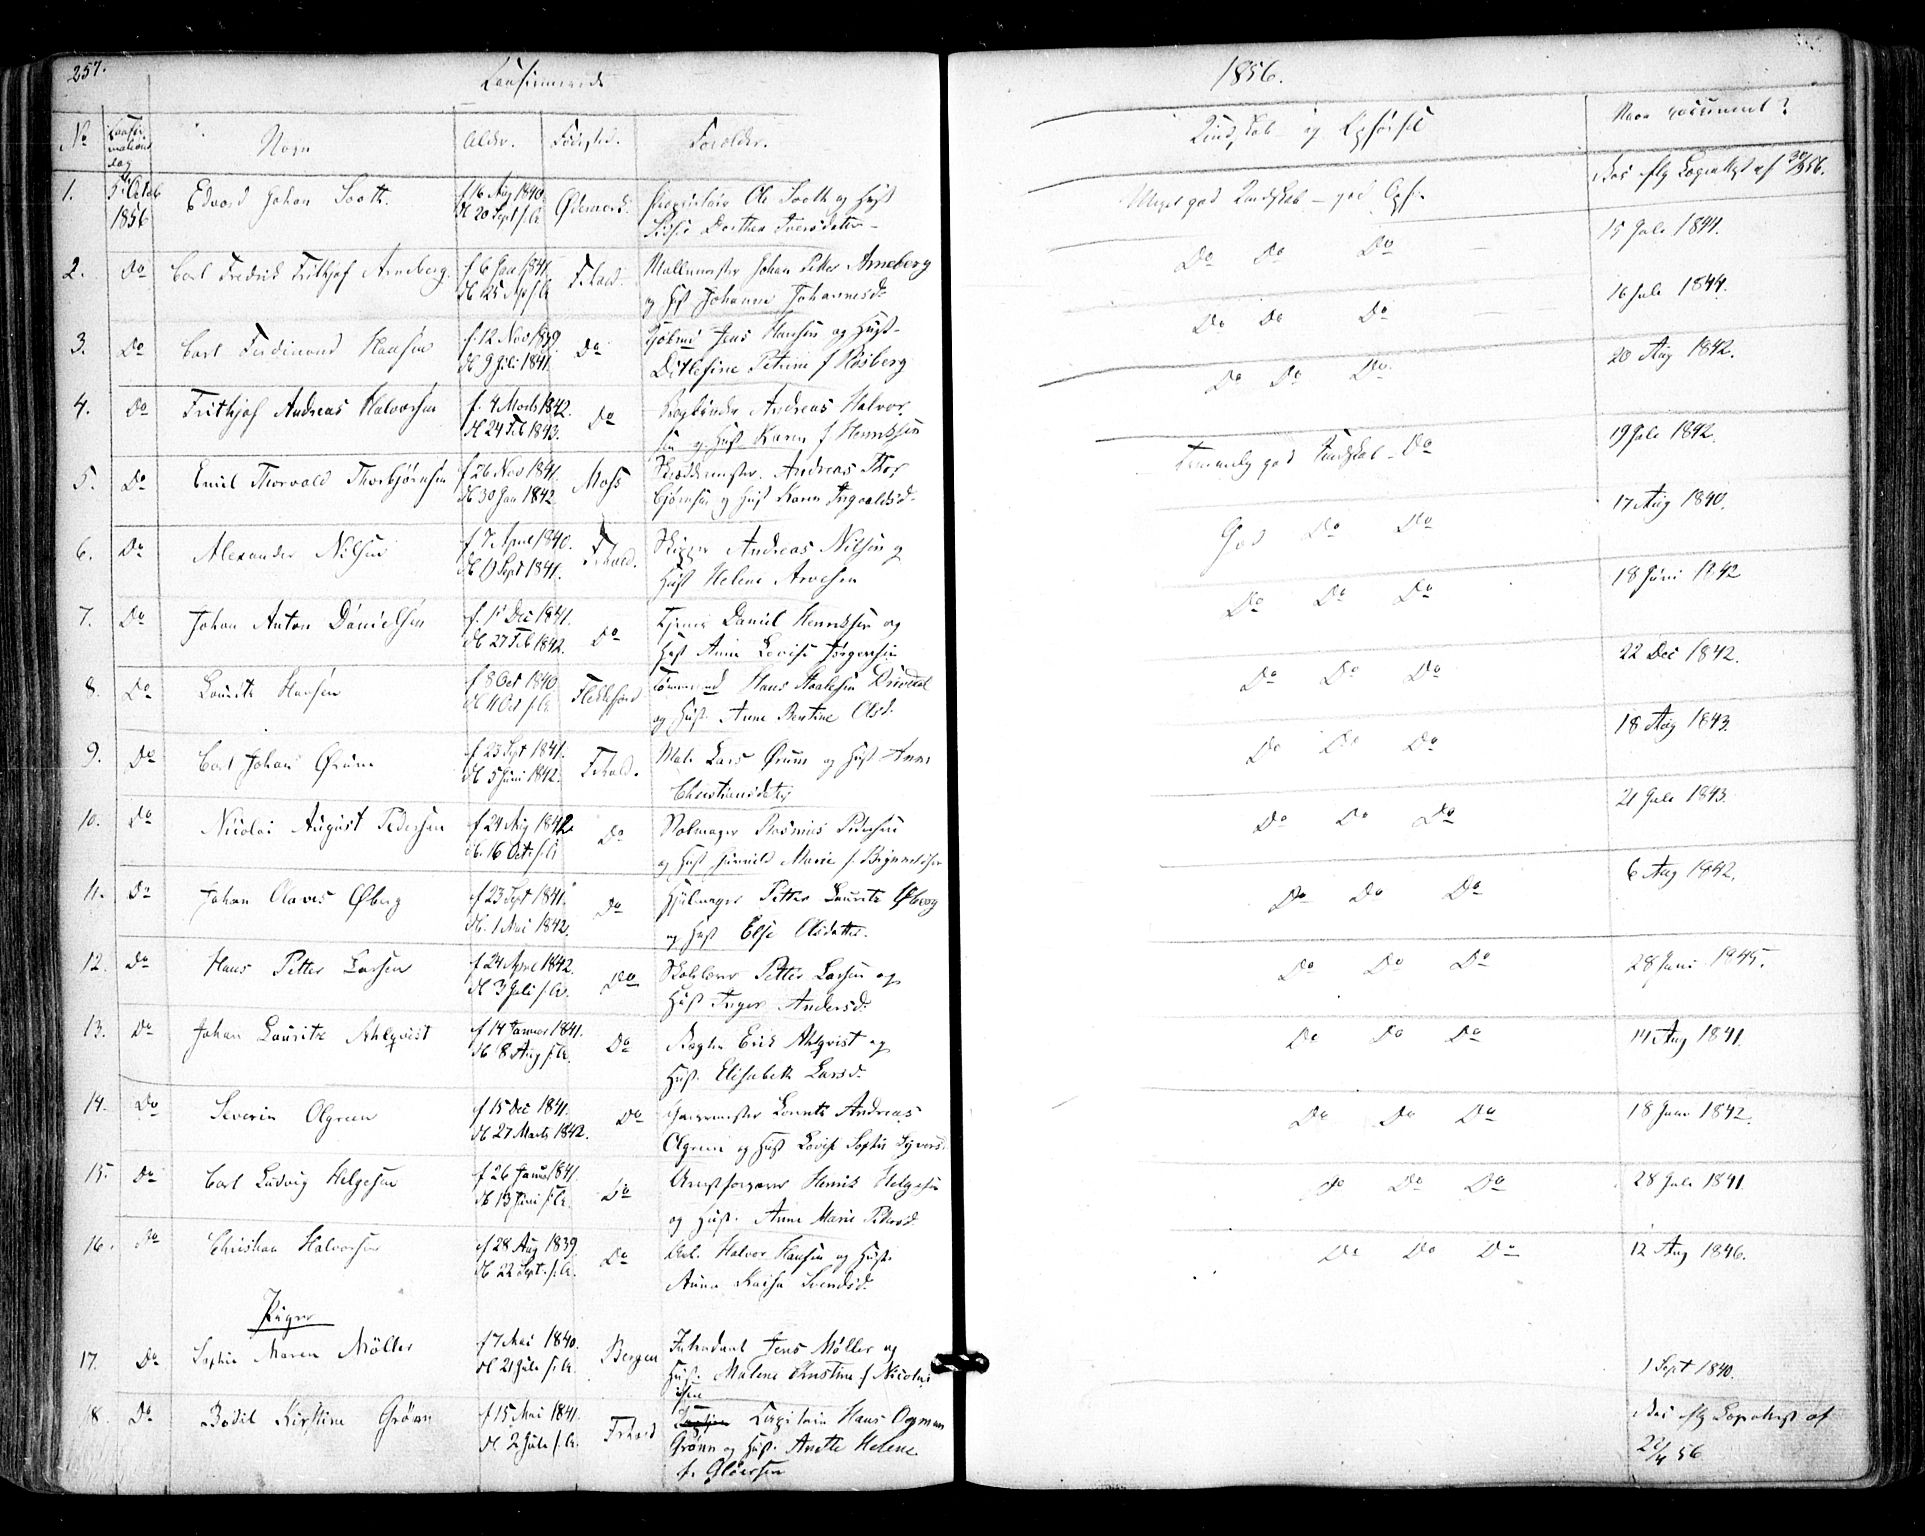 257.
Confirmerede
1856.
No Confirmations dag Navn Alder. Fødested. Forældre. Kundskab og Opførsel Naar vaccineret?
1. 5te Octob 1856 Edvard Johan Sooth. f 16 Aug 1840. db 20 Sept s. A. Ødemark. Proprietair Ole Sooth og Hust
Dorthea Iversdatter Meget god Kundskab - god Opf. af 30/9 56.
2. Do Carl Fredrik Frithjof Arneberg. f 6 Jan 1841. db 25 s. A. Frhald. Johan Petter Arneberg
og Hust Johanne Johannesd. Do Do Do 15 Juli 1844.
3. Do Carl Ferdinand Hansen f. 12 Nov 1839. db 9 Juli 1841. Do Jens Hansen og Hust.
Ditlefine Petrine f Høsberg Do Do Do 16 Juli 1844.
4. Do Frithjof Andreas Halvorsen f. 4 Marts 1842. db 24 Feb 1843. Do Bogbinder Andreas Halvor
sen og Hust Karen f Henriksen Do Do Do 20 Aug 1842.
5. Do Emil Thorvald Thorbjørnsen f 26 Nov 1841. db 30 Jan 1842. Moss Andreas Thor
bjørnsen og Hust Karen Ingvaldsd. Temmelig god Kundskab - Do 19 Juli 1842.
6. Do Alexander Nilsen f 7 April 1840. db Sept 1841. Frhald. Skipper Andreas Nilsen og
Hust Helene Arvesen God Do Do 17 Aug 1840.
7. Do Johan Anton Danielsen f. 1 Dec 1841. db 27 Feb 1842. Do Daniel Henriksen og
Hust Anne Lovise Jørgensen Do Do Do 18 Juni 1842
8. Do Lauritz Hansen f 8 Oct 1840 db 11 Oct s. A. Flekkefjord Hans
og Hust. Anne Bertine Olsd. Do Do Do 22 Dec 1842.
9. Do Carl Johan Ørum f 23 Sept 1841. db 5 Juni 1842. Frhald. Lars Ørum og Hust Anne
Christiansdatter Do Do Do 18 Aug 1843.
10. Do Nicolai August Pedersen f 24 Aug 1842. db. 16 Oct. s. A Do Stolmager Rasmus Pedersen
og Hust Marie f. Do Do Do 21 Juli 1843.
11. Do Johan Olaves Øberg f 23 Sept 1841. db. 1 Mai 1842. Do Hjulmager Petter Lauritz Øberg
og Hust Else Olsdatter. Do Do Do 6 Aug 1842.
12. Do Hans Petter Larsen f 24 April 1842. db 3 Juli s. A. Do Petter Larsen og
Hust Inger Andersd. Do Do Do 28 Juni 1845.
13. Do Johan Lauritz Ahlqvist f 14 Januar 1841. db 8 Aug s. A. Do Erik Ahlqvist og
Hust. Elisabeth Larsd. Do Do Do 14 Aug 1841.
14. Do Severin Olgreen f 15 Dec 1841. db 27 Marts 1842. Do Lauritz Andreas
Olgreen og Hust Lovise Sophie Do Do Do 18 Juni 1842.
15. Do Carl Ludvig Helgesen f 26 Januar 1841. db 13 Juni s. A. Do Arrestforvarer Henrik Helgesen
og Hust. Anne Marie Pettersd. Do Do Do 28 Juli 1841
16. Do Christian Halvorsen f 28 Aug 1839. db 22 Sept. s. A. Do Halvor Hansen og Hust.
Anna Kaisa Svendsd. Do Do Do 12 Aug 1846.
Piger
17. Do Sophie Maren Möller f 7 Mai 1840. db 21 Juli s. A. Bergen Intendant Jens Møller og
Hust. Malene Christine f Nicolai
sen 1 Sept 1840.
18. Do Bodil Kirstine Grönn f 15 Mai 1841. db 2 Juli s. A. Frhald Capitain Hans Aagman
Grönn og Hust. Anette Helene
f. Glöersen af
22/4 56